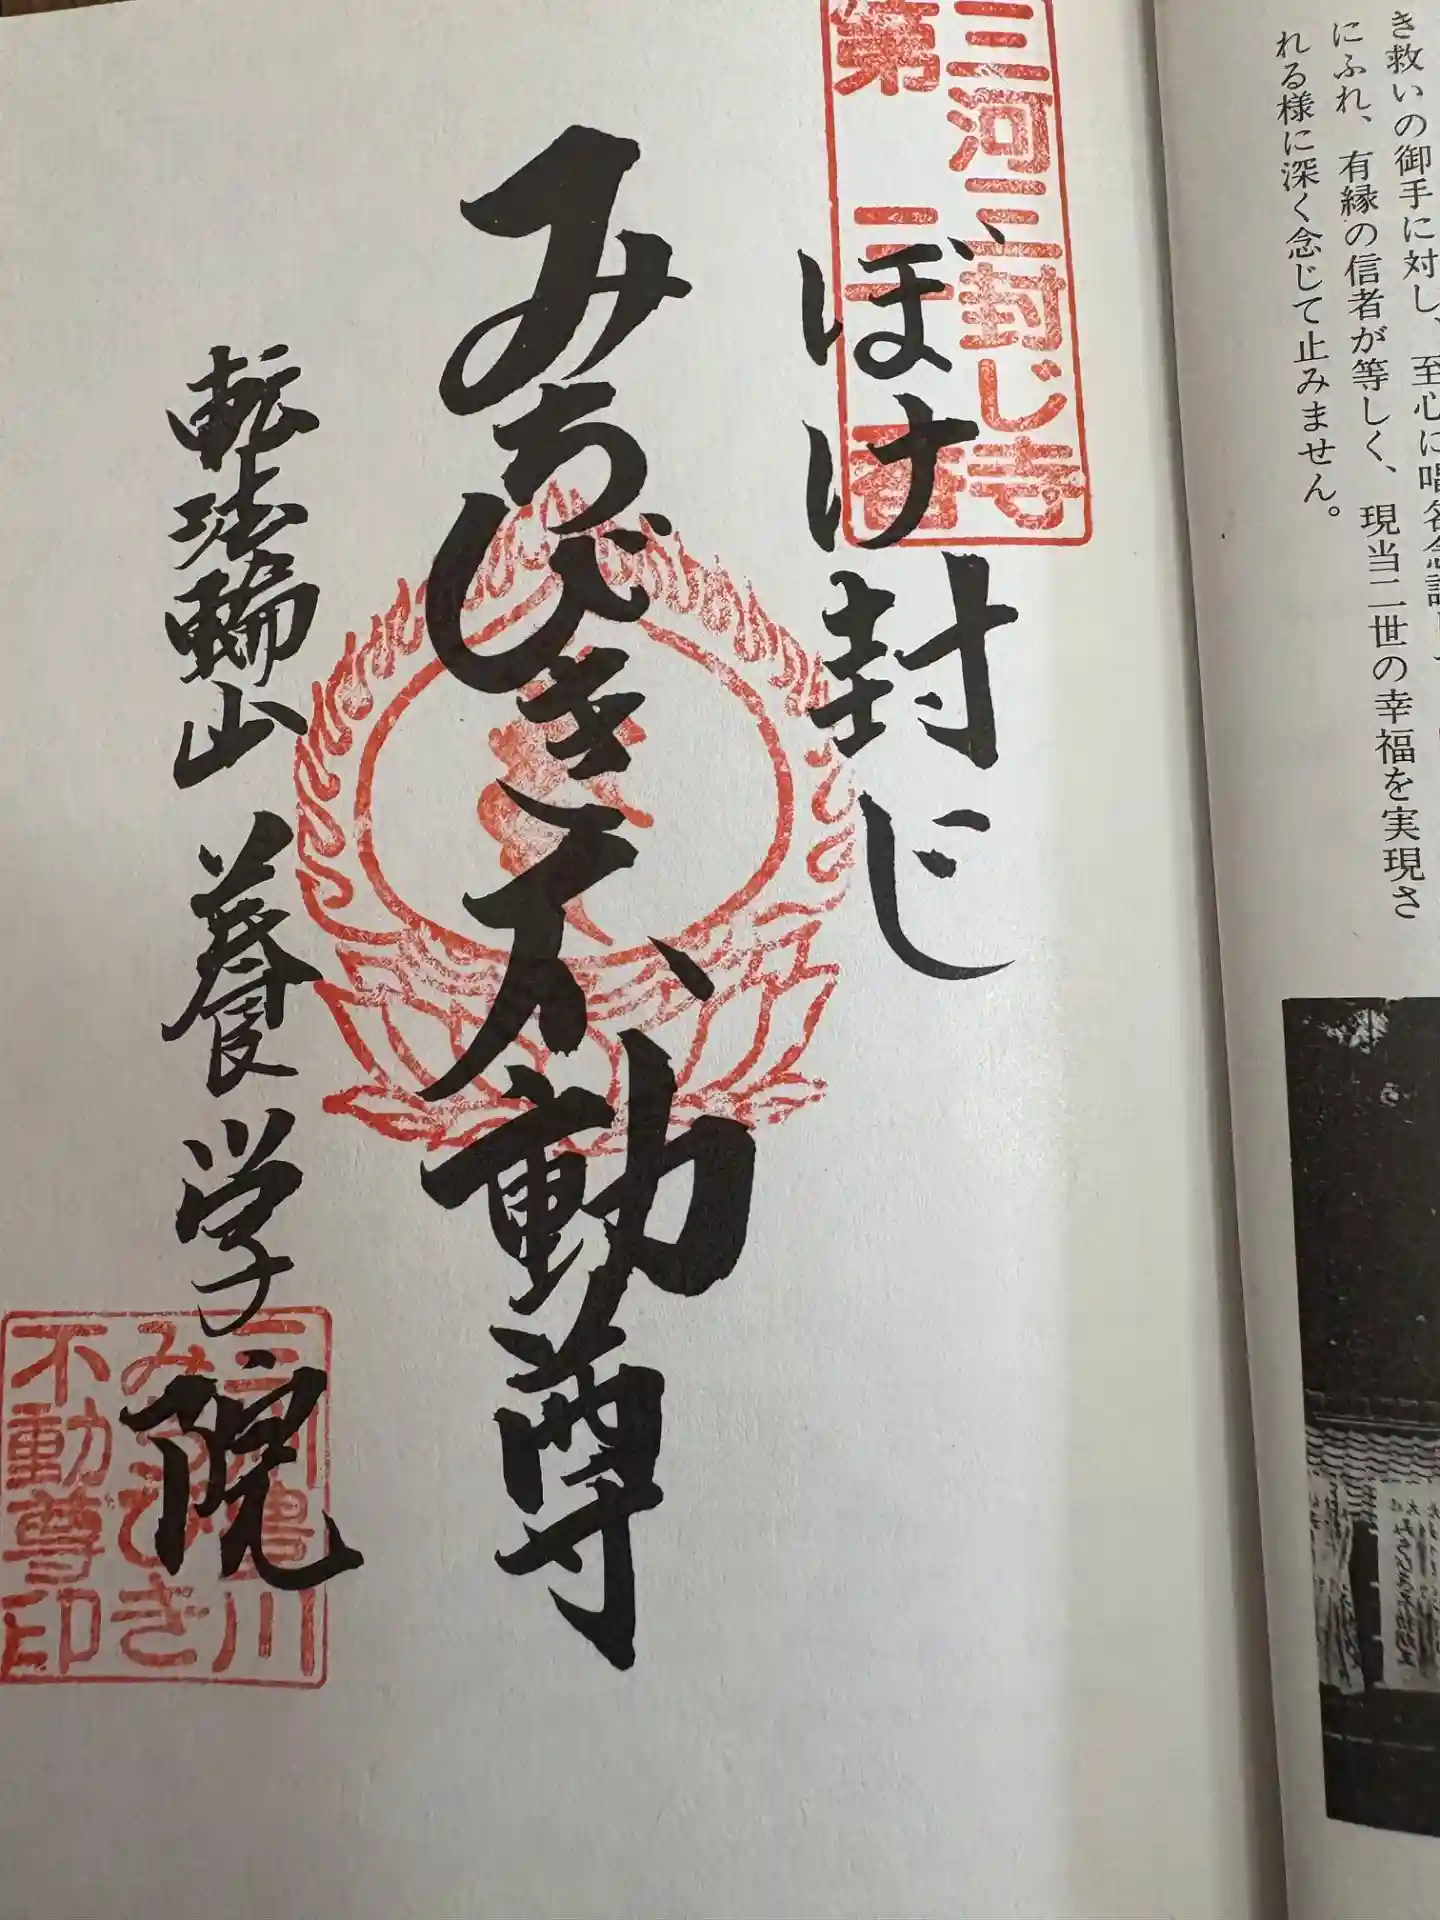 き救いの御手に対し、至心に唱名念
にふれ、有縁の信者が等しく、現当二世の幸福を実現さ
れる様に深く念じて止みません。
三河三封じ寺
第二番
ぼけ封じ
みちびき不動尊
転法輪山 養学院
みちびき
不動尊印